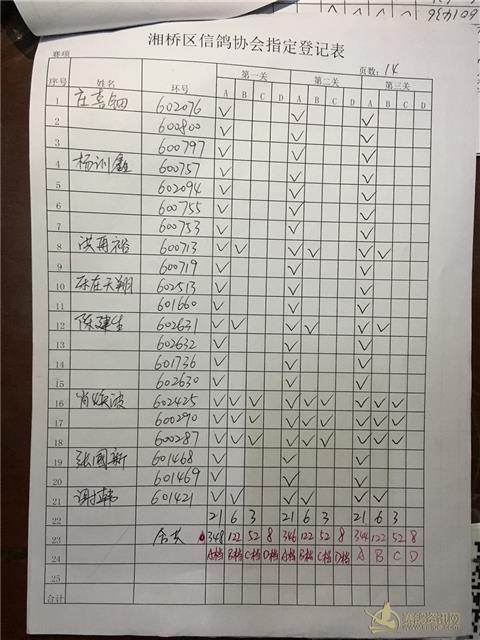 湘桥区信鸽协会指定登记表
赛项 页数: 14
序号 姓名 环号 第一关 第二关 第三关
A B C D A B C D A B C D
1 庄喜钿 602076 ✓ ✓ ✓
2 600800 ✓ ✓ ✓
3 600797 ✓ ✓ ✓
4 杨训鑫 600757 ✓ ✓ ✓
5 602094 ✓ ✓ ✓
6 600755 ✓ ✓ ✓
7 600753 ✓ ✓ ✓
8 洪再裕 600713 ✓ ✓ ✓ ✓ ✓ ✓
9 600719 ✓ ✓ ✓
10 乐在天翔 602513 ✓ ✓ ✓
11 601660 ✓ ✓ ✓
12 陈建生 602631 ✓ ✓ ✓ ✓ ✓ ✓
13 602632 ✓ ✓ ✓
14 601736 ✓ ✓ ✓
15 602630 ✓ ✓ ✓
16 肖 波 602425 ✓ ✓ ✓ ✓ ✓ ✓ ✓ ✓ ✓
17 600290 ✓ ✓ ✓ ✓ ✓ ✓ ✓ ✓ ✓
18 600287 ✓ ✓ ✓ ✓ ✓ ✓ ✓ ✓ ✓
19 张国新 601468 ✓ ✓ ✓
20 601469 ✓ ✓ ✓
21 谢 601421 ✓ ✓ ✓ ✓ ✓ ✓
22 21 6 3 21 6 3 21 6 3
23 合共 348 122 52 8 346 122 52 8 344 122 52 8
24 A档 B档 C档 D档 A档 B档 C档 D档 A B C D
25
合计
赛鸽资讯网